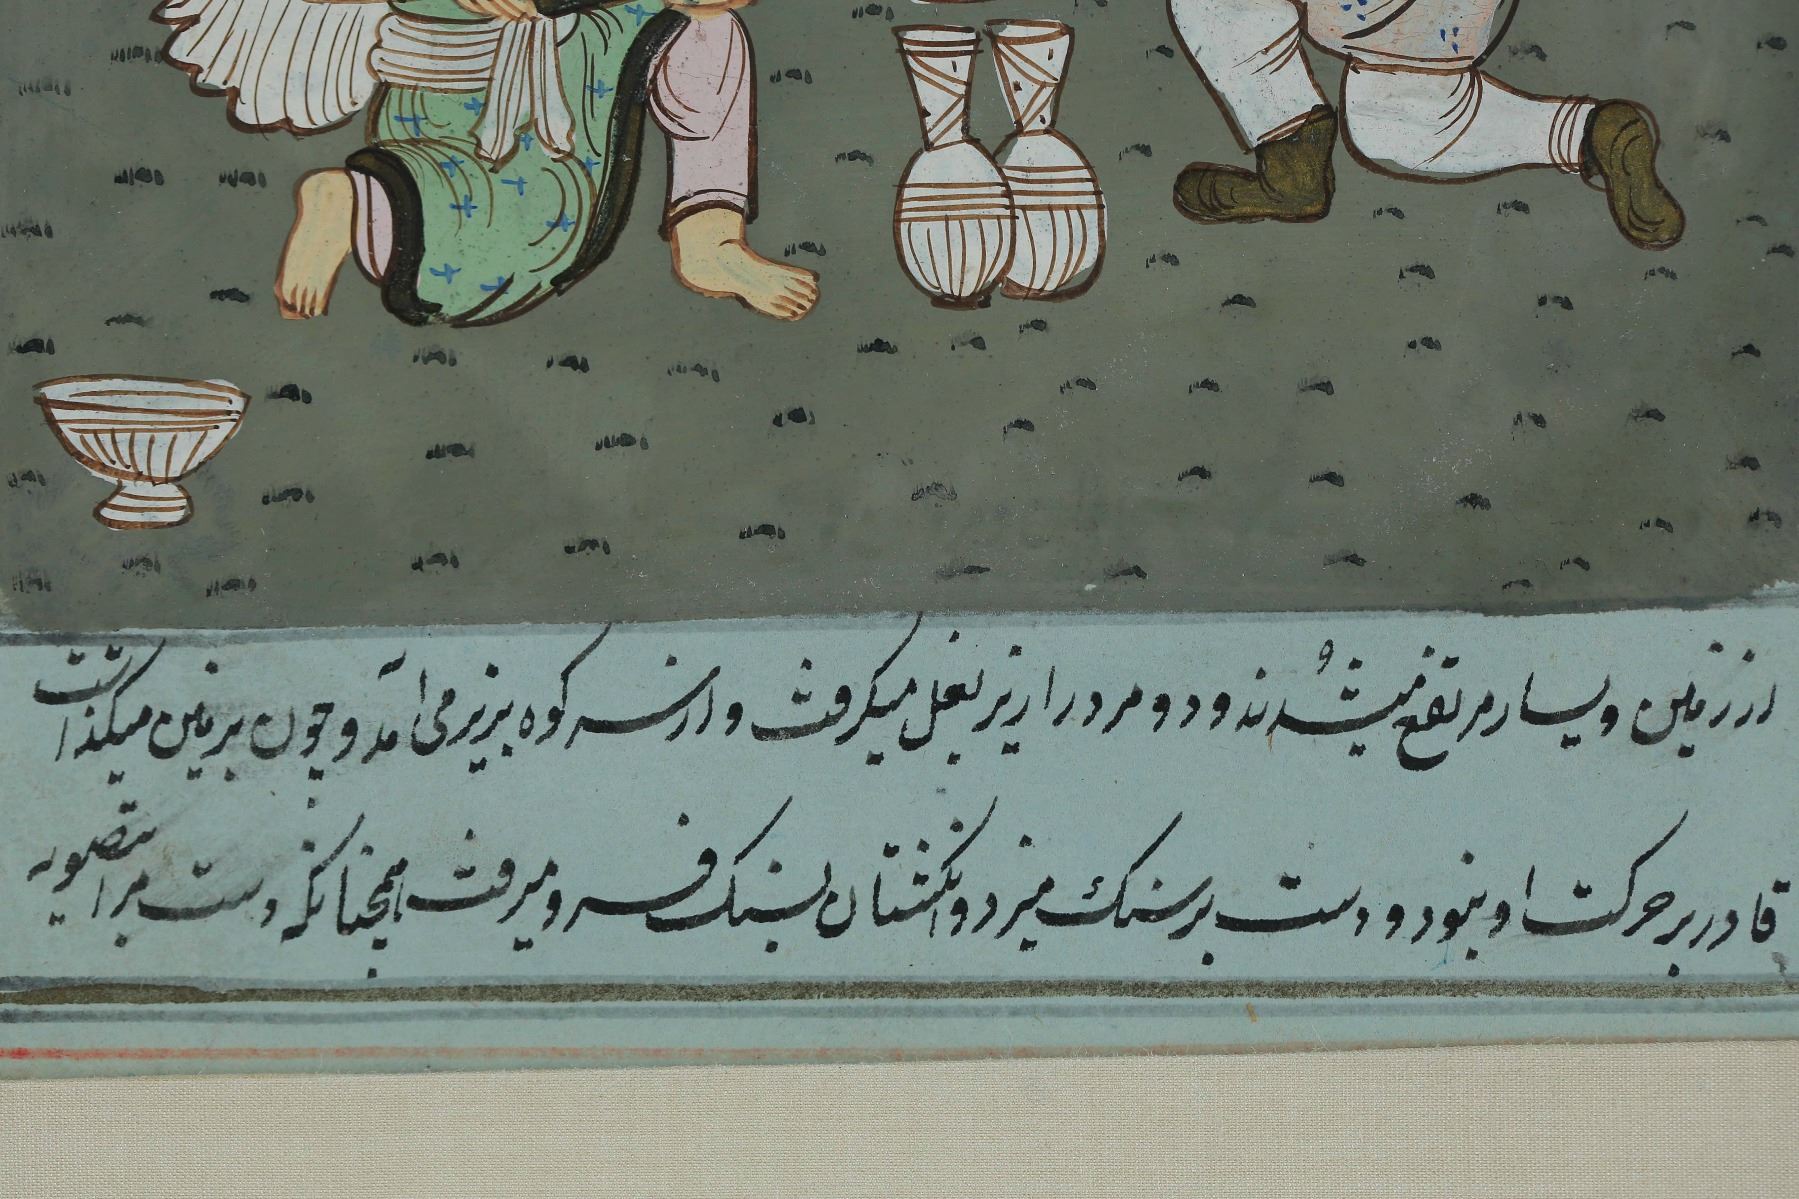 از زمین و یسار مرتفع میشدند و دو مرد را زیر بغل میکرفت و از سر کوه بزیر می آمد و چون بر زمین میکذاشت
قادر بر حرکت او نبود و دست بر سنک میزد و انکشتان بسنک فرو میرفت همچنانکه دست مرا